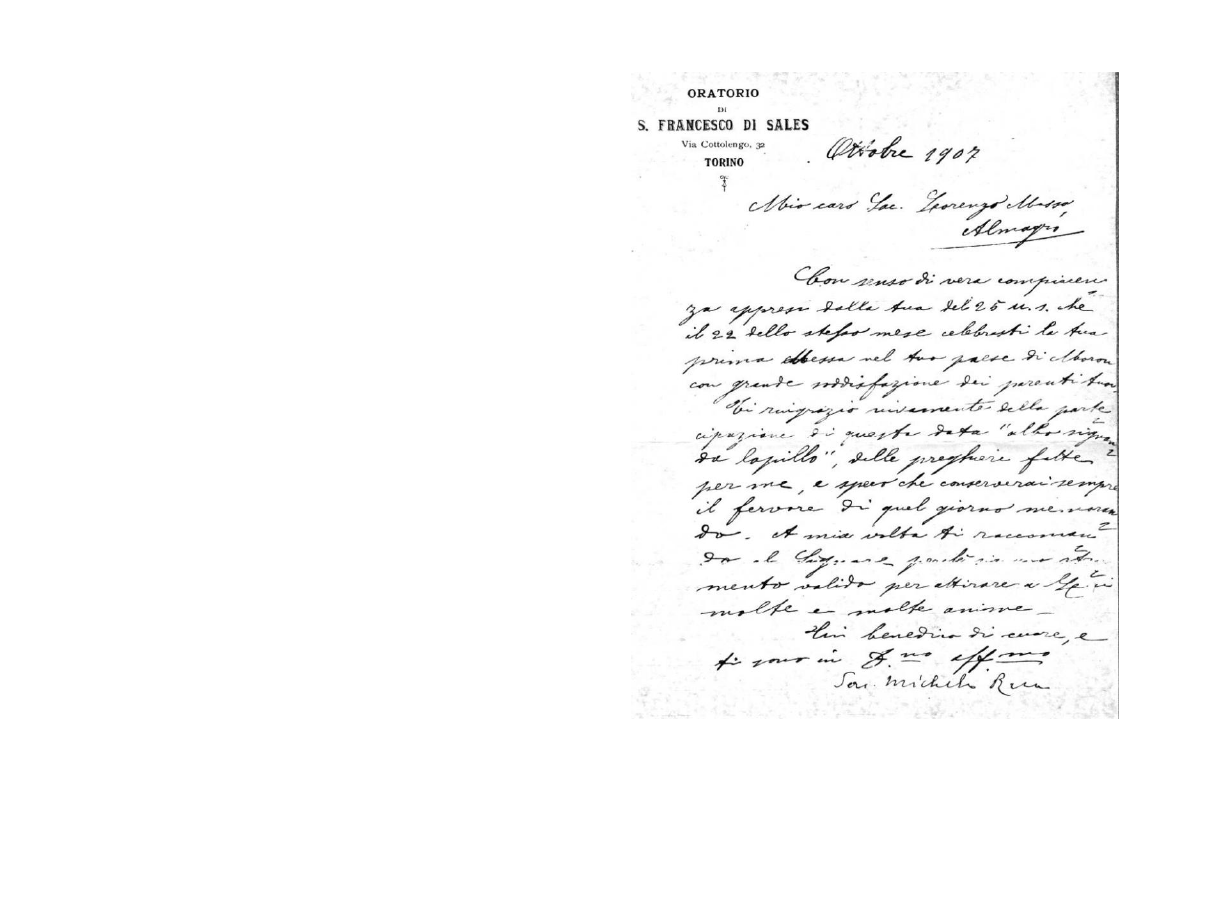 ORATORIO
DI
S. FRANCESCO DI SALES
Via Cottolengo, 32
TORINO
Ottobre 1907
Mio caro Sac. Lorenzo Massa,
Almagro
Con senso di vera compiacen
za appresi dalla tua del 25 u. s. che
il 22 dello stesso mese celebrasti la tua
prima Messa nel tuo paese di Moron
con grande soddisfazione dei parenti tuoi.
Ti ringrazio vivamente della parte
cipazione di questa data "albo signan
da lapillo", delle preghiere fatte
per me, e spero che conserverai sempre
il fervore di quel giorno memoran
do. A mia volta ti raccoman
do al Signore perchè sii uno stru
mento valido per attirare a
molte e molte anime
benedico di cuore, e
ti sono in affmo
Sac. Michele Rua